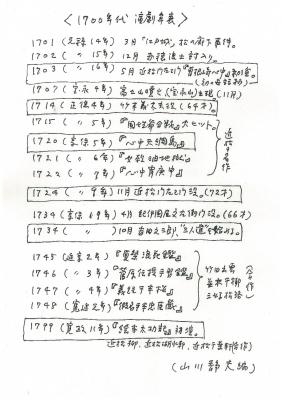 〈1700年代 演劇年表〉
1701 (元禄14年) 3月「江戸城」松の廊下事件。
1702 (〃 15年) 12月 赤穂浪士討入り。
1703 (〃 16年) 5月 近松門左衛門『曽根崎心中』初演。
(初の世話物)
1707 (宝永4年) 富士山噴火(宝永山)出現 (11月)
1714 (正徳4年) 竹本義太夫没 (64才)
1715 (〃 5年) 『国性爺合戦』大ヒット。
1720 (享保5年) 『心中天網島』
1721 (〃 6年) 『女殺油地獄』
1722 (〃 7年) 『心中宵庚申』
近松の名作
1724 (〃 9年) 11月 近松門左衛門没。(72才)
1734 (享保19年) 4月 紀伊國屋文左衛門没。(66才)
1734 (〃) 10月 吉田文三郎、"三人遣"を始める。
1745 (延享2年) 『夏祭浪花鑑』
1746 (〃 3年) 『菅原伝授手習鑑』
1747 (〃 4年) 『義経千本桜』
1748 (寛延元年) 『仮名手本忠臣蔵』
竹田出雲
並木千柳
三好松洛
(合作)
1799 (寛政11年) 『絵本太功記』初演。
近松柳、近松湖水軒、近松千葉軒(合作)
(山川静夫編)